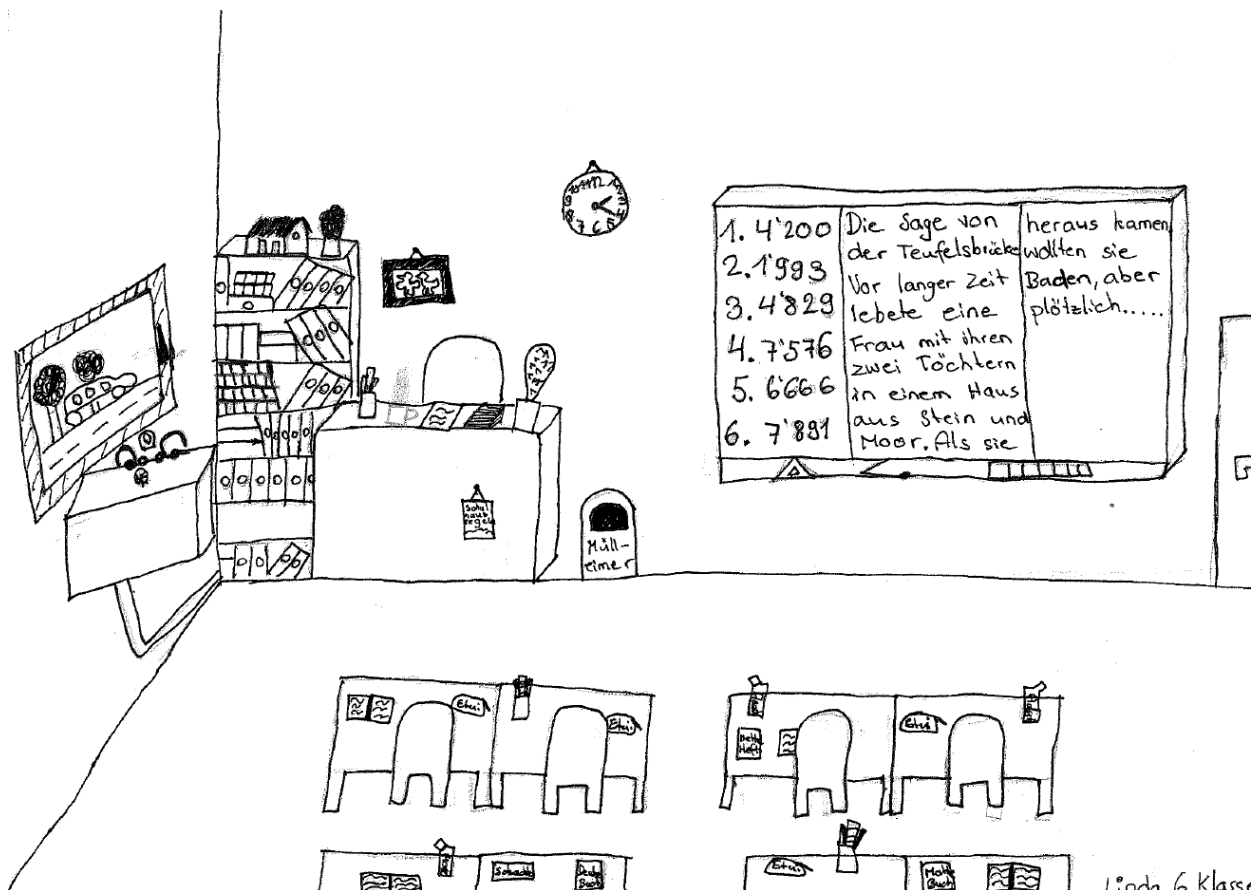 1. 4'200
2. 1'993
3. 4'829
4. 7'576
5. 6666
6. 7'891
Die Sage von
der Teufelsbrücke
Vor langer Zeit
lebete eine
Frau mit ihren
zwei Töchtern
in einem Haus
aus Stein und
Moor. Als sie
heraus kamen,
wollten sie
Baden, aber
plötzlich.....
Schul
haus
regeln
Müll-
eimer
Etui
Etui
Etui
Etui
Mathe
Buch
Linda 6 Klasse